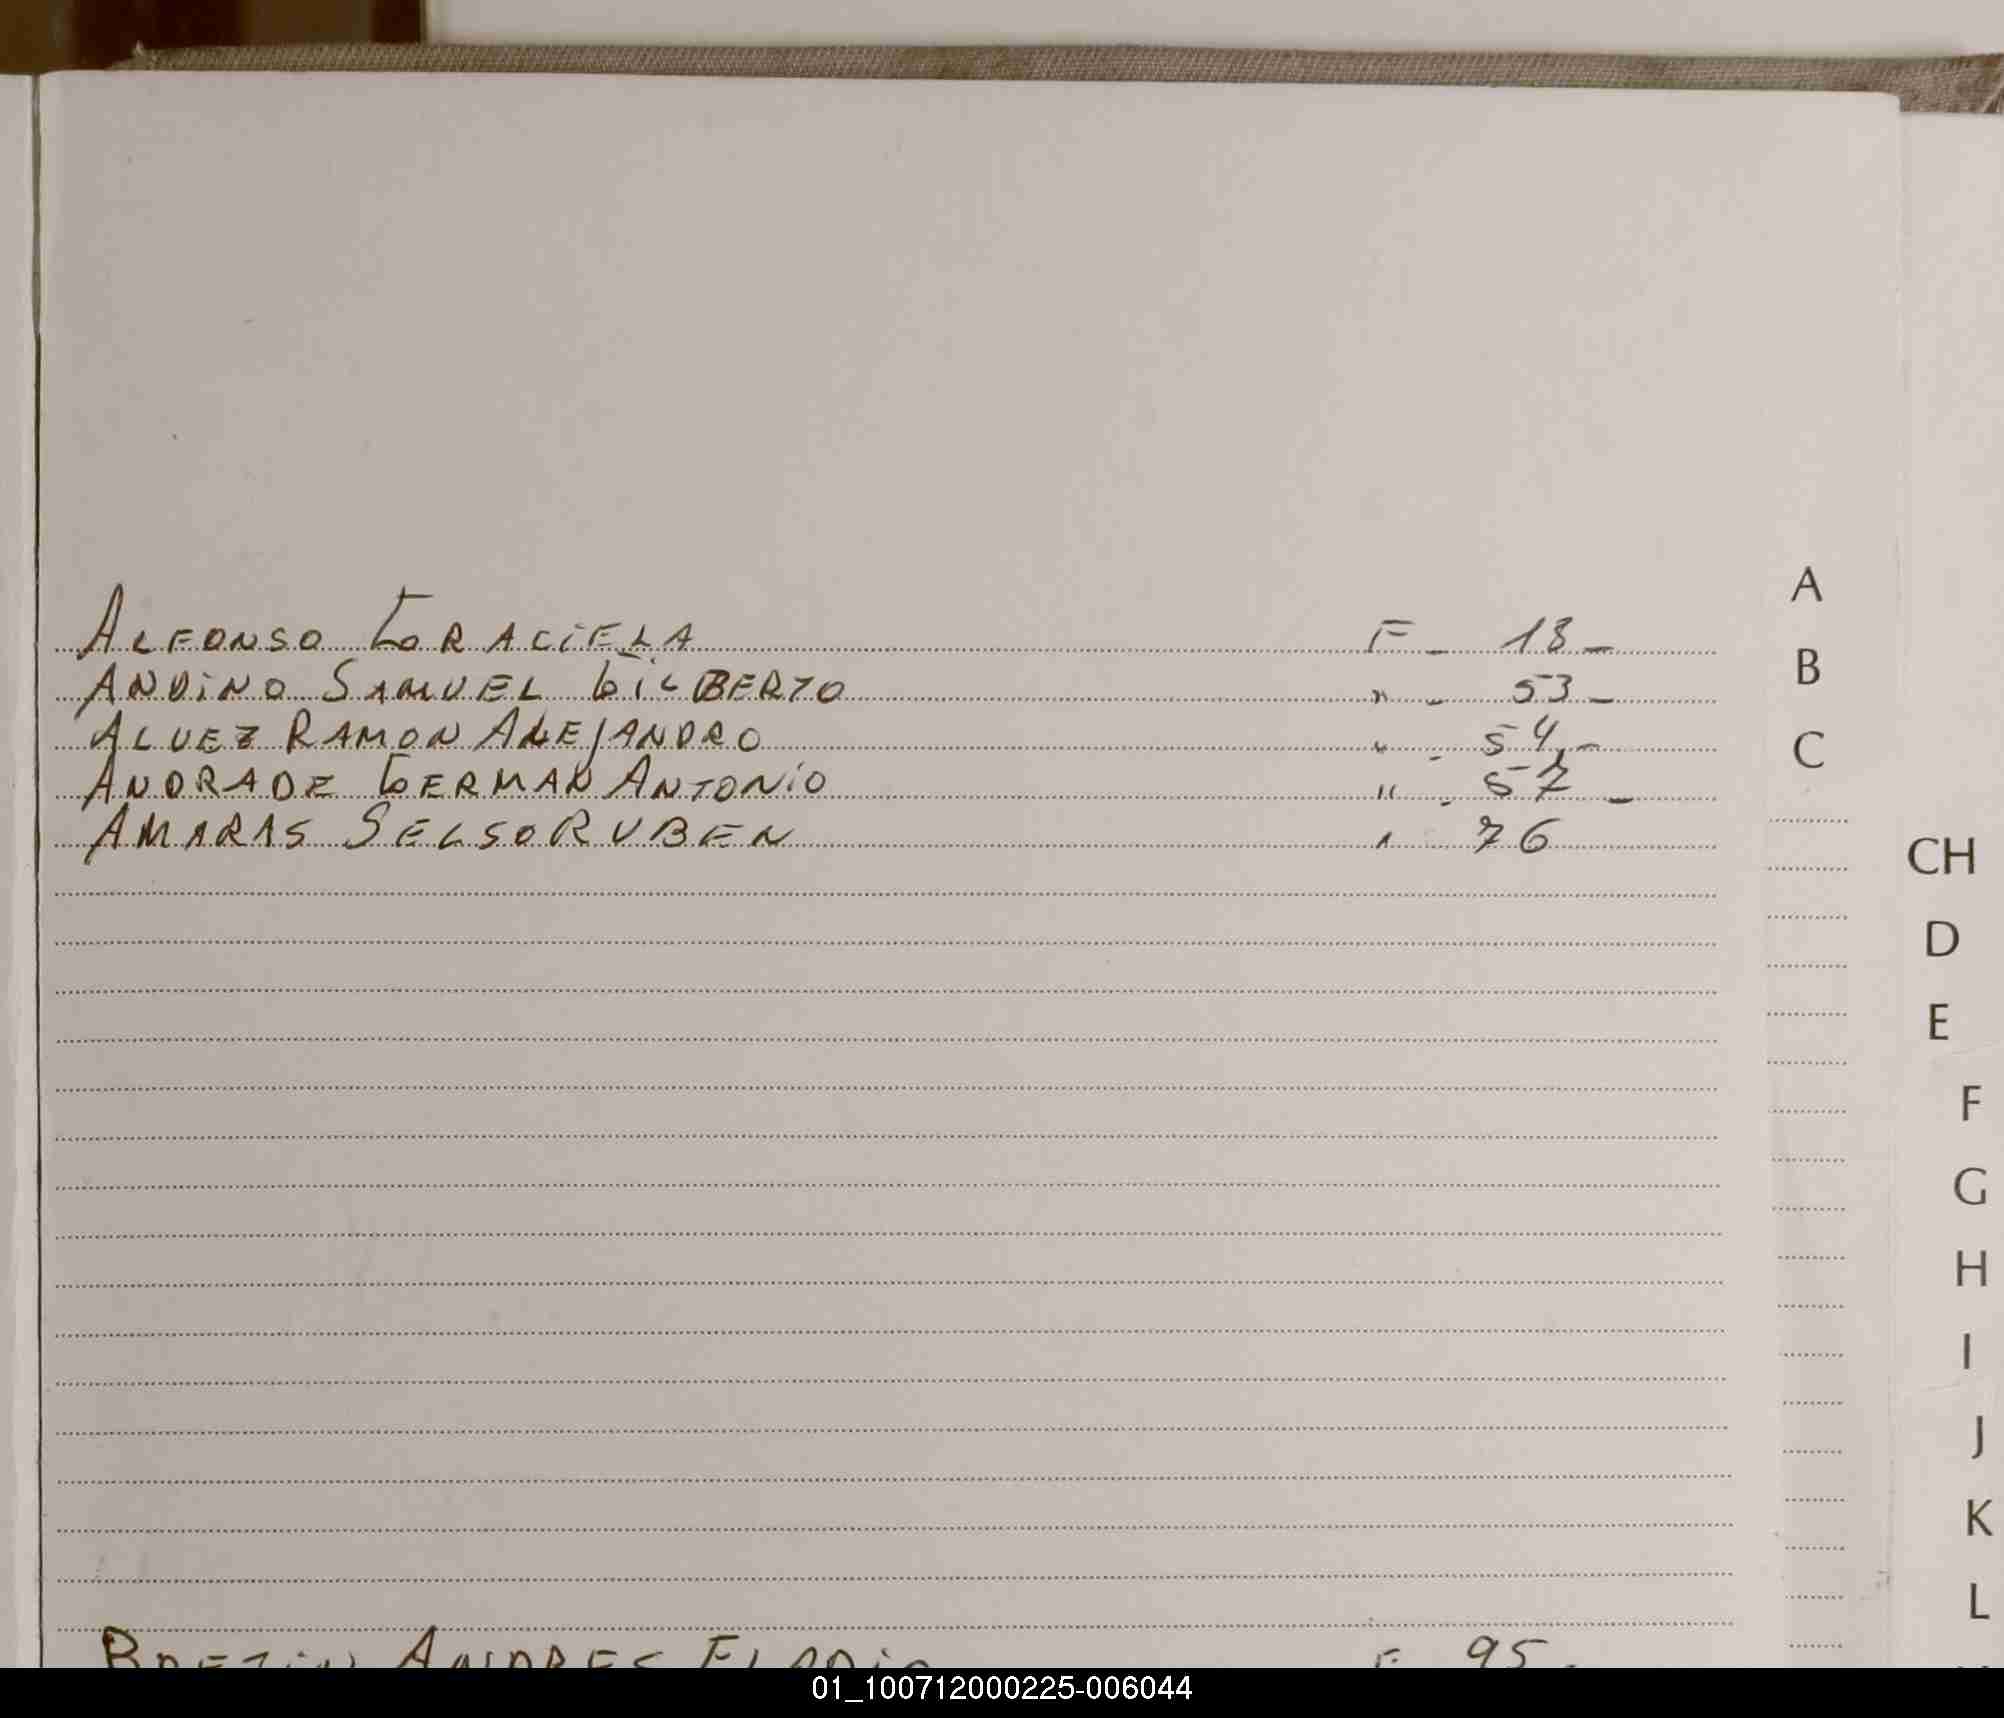 ALFONSO GRACIELA F - 18 -
ANDINO SAMUEL GILBERTO " - 53 -
ALVEZ RAMON ALEJANDRO " - 54 -
ANDRADE GERMAN ANTONIO " - 57 -
AMARAS SELSO RUBEN " 76
ANDRES ELADIO F. 95 -
A
B
C
CH
D
E
F
G
H
I
J
K
L
01_100712000225-006044